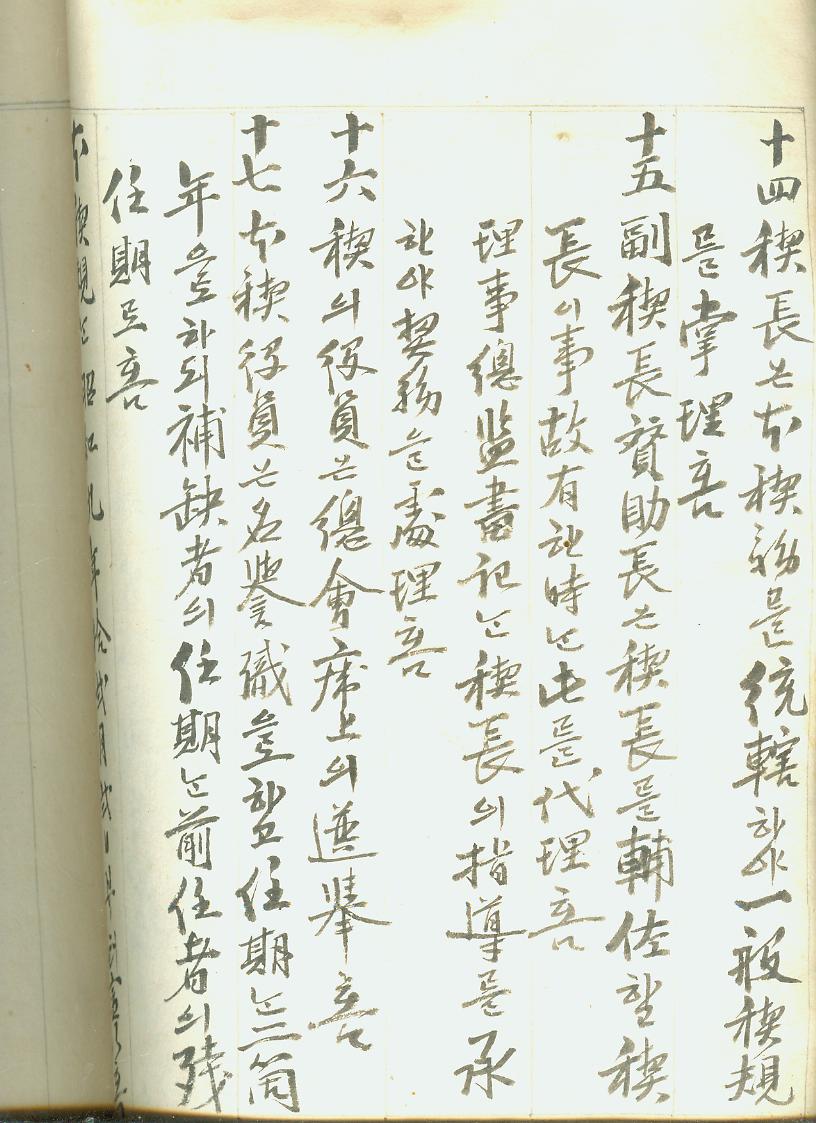 十四稧長는本稧務를統轄하야一般稧規
를掌理홈
十五副稧長贊助長는稧長를輔佐하고稧
長이事故有한時는此를代理홈
理事總監書記는稧長의指導를承
하야契務를處理홈
十六稧의役員는總會席上의選擧홈
十七本稧役員는名譽職을로하고任期는三箇
年을로하되補缺者의任期는前任者의殘
任期로홈
本稧規는昭和九年拾貳月貳